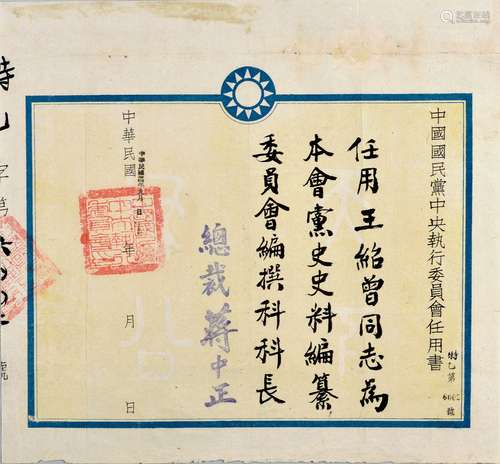 中國國民黨中央執行委員會任用書
特乙第
號
任用王紹曾同志為
本會黨史史料編纂
委員會編撰科科長
總裁蔣中正
中華民國 年 月 日
特乙字第六
號